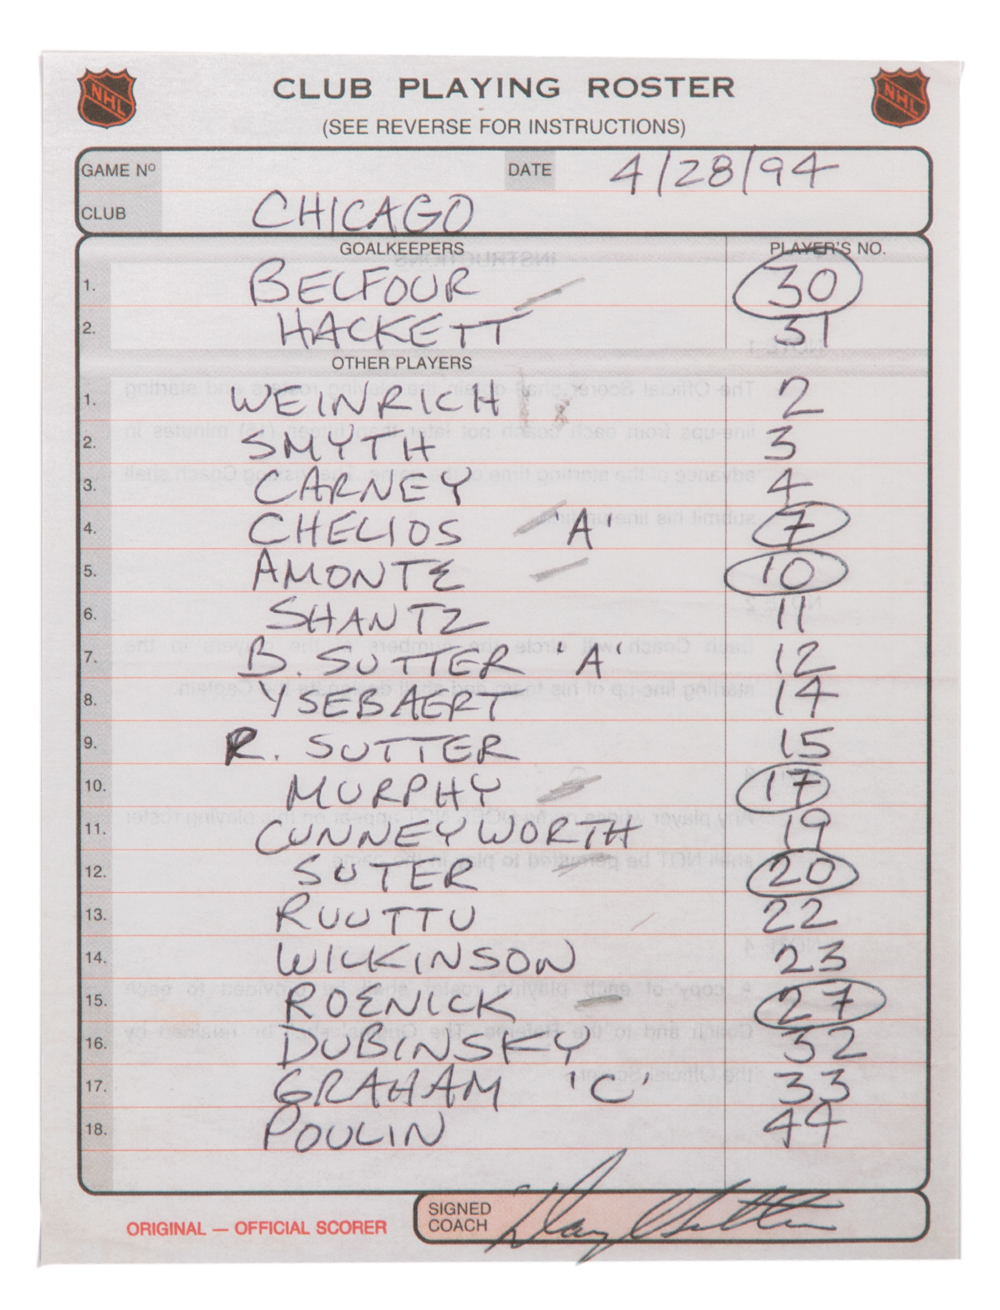 NHL CLUB PLAYING ROSTER NHL
(SEE REVERSE FOR INSTRUCTIONS)
GAME Nº DATE 4/28/94
CLUB CHICAGO
GOALKEEPERS PLAYER'S NO.
1. BELFOUR 30
2. HACKETT 31
OTHER PLAYERS
1. WEINRICH 2
2. SMYTH 3
3. CARNEY 4
4. CHELIOS 'A' 7
5. AMONTE 10
6. SHANTZ 11
7. B. SUTTER 'A' 12
8. YSEBAERT 14
9. R. SUTTER 15
10. MURPHY 17
11. CUNNEYWORTH 19
12. SUTER 20
13. RUUTTU 22
14. WILKINSON 23
15. ROENICK 27
16. DUBINSKY 32
17. GRAHAM 'C' 33
18. POULIN 44
ORIGINAL — OFFICIAL SCORER
SIGNED
COACH